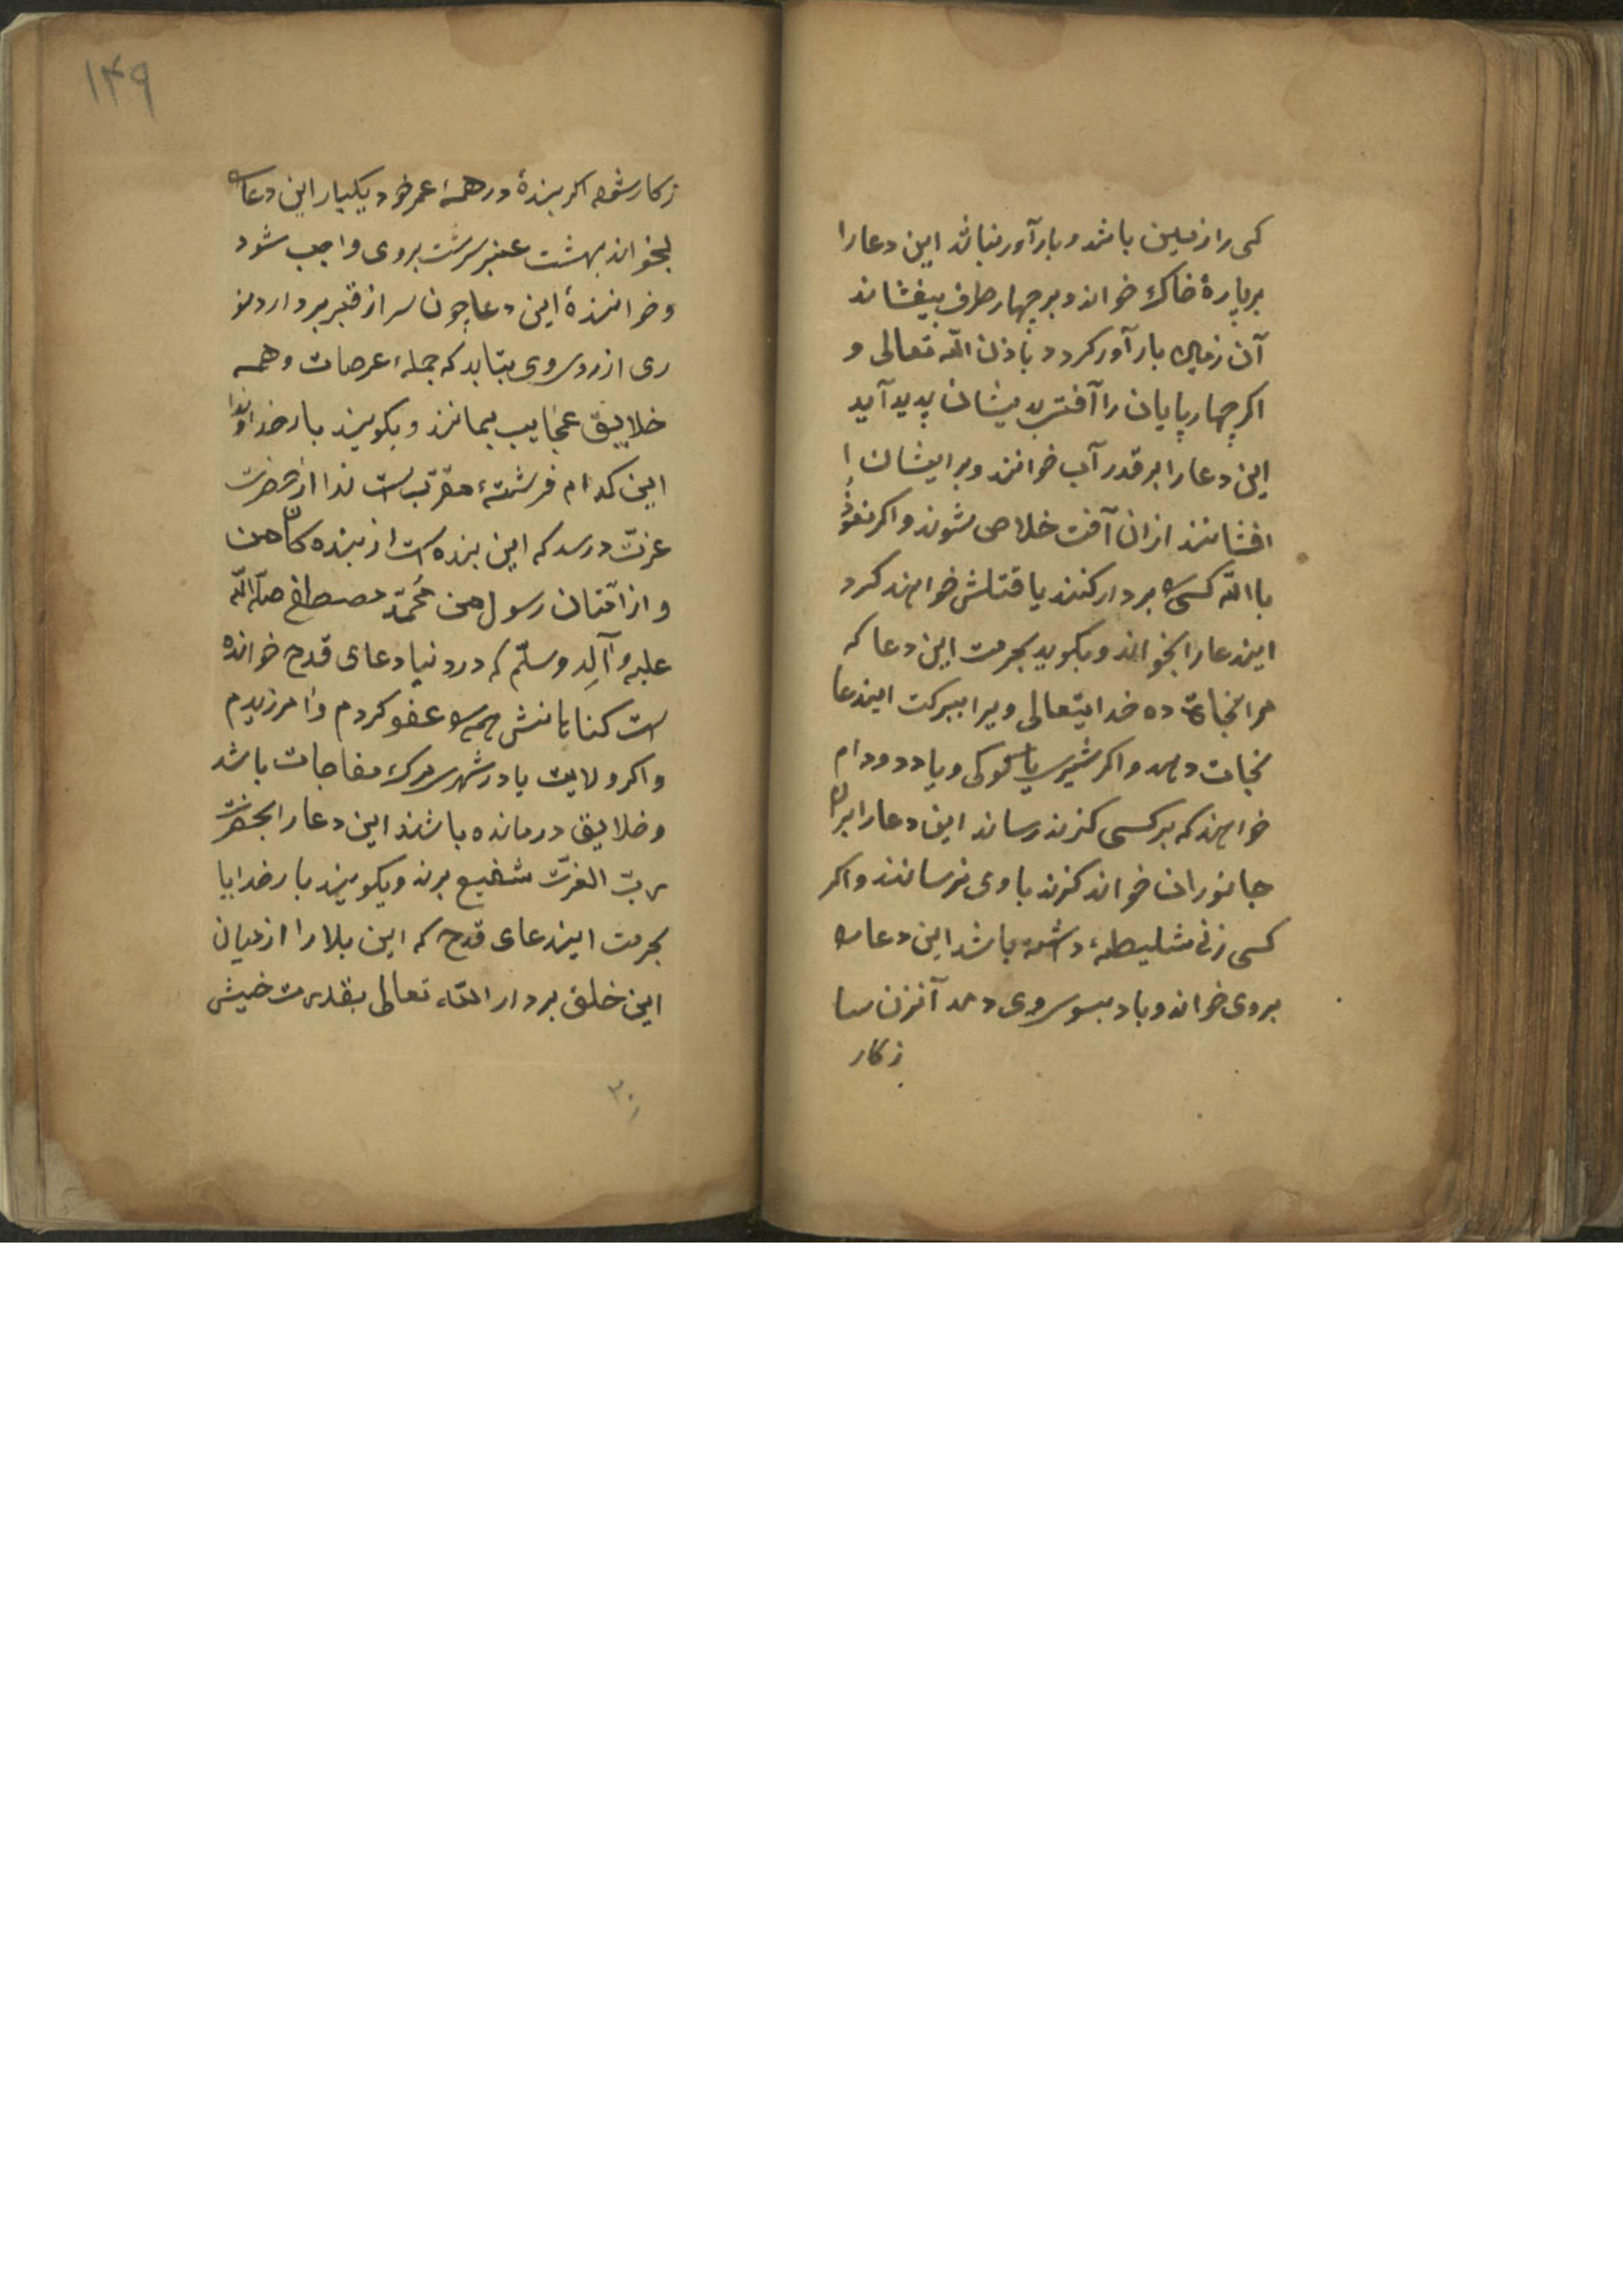 کی را زمین باشد و بارآور نباشد این دعا را
بر پارهٔ خاک خواند و بر چهار طرف بیفشاند
آن زمین بارآور کردد باذن الله تعالی و
اکر چهارپایان را آفتی بدیشان پدید آید
این دعا را بر قدر آب خوانند و بر ایشان
افشانند ازان آفت خلاص شوند و اکر نعوذ
باالله کسی را بردار کنند یا قتلش خواهند کرد
ایندعا را بخواند و بکوید بحرمت این دعا که
مرا نجات ده خدایتعالی ویرا ببرکت ایندعا
نجات دهد و اکر شیری یا کرکی و یا دد و دام
خواهند که بر کسی کزند رساند این دعا را بر آن
جانوران خواند کزند با وی نرسانند و اکر
کسی زنی سلیطهٔ داشته باشد این دعا را
بر وی خواند و باد بسوی وی دمد آنزن سا
زکار
۱۴۹
زکار شود اکر بندهٔ در همهٔ عمر خود یکبار این دعا را
بخواند بهشت عنبر سرشت بر وی واجب شود
و خوانندهٔ این دعا چون سر از قبر بردارد نو
ری از روی وی بتابد که جملهٔ عرصات و همه
خلایق عجایب بمانند و بکویند بار خداوندا
این کدام فرشتهٔ مقرّب است ندا از حضرت
عزّت در رسد که این بنده است از بنده کان من
و از امّتان رسول من محمّد مصطفی صلّی الله
علیه وآله وسلّم که در دنیا دعای قدح خوانده
است کناهانش همه را عفو کردم و آمرزیدم
و اکر ولایت یا در شهری مرک مفاجات باشد
و خلایق درمانده باشند این دعا را بحضرت
ربّ العزّت شفیع برند و بکویند بار خدایا
بحرمت ایندعای قدح که این بلا را از میان
این خلق بردار الله تعالی بقدرت خیش
۲۰